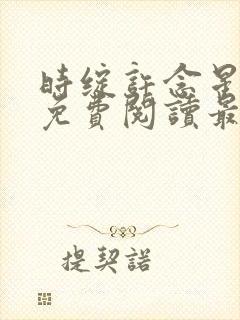 時綻許念星
免費閱讀最
提契諾